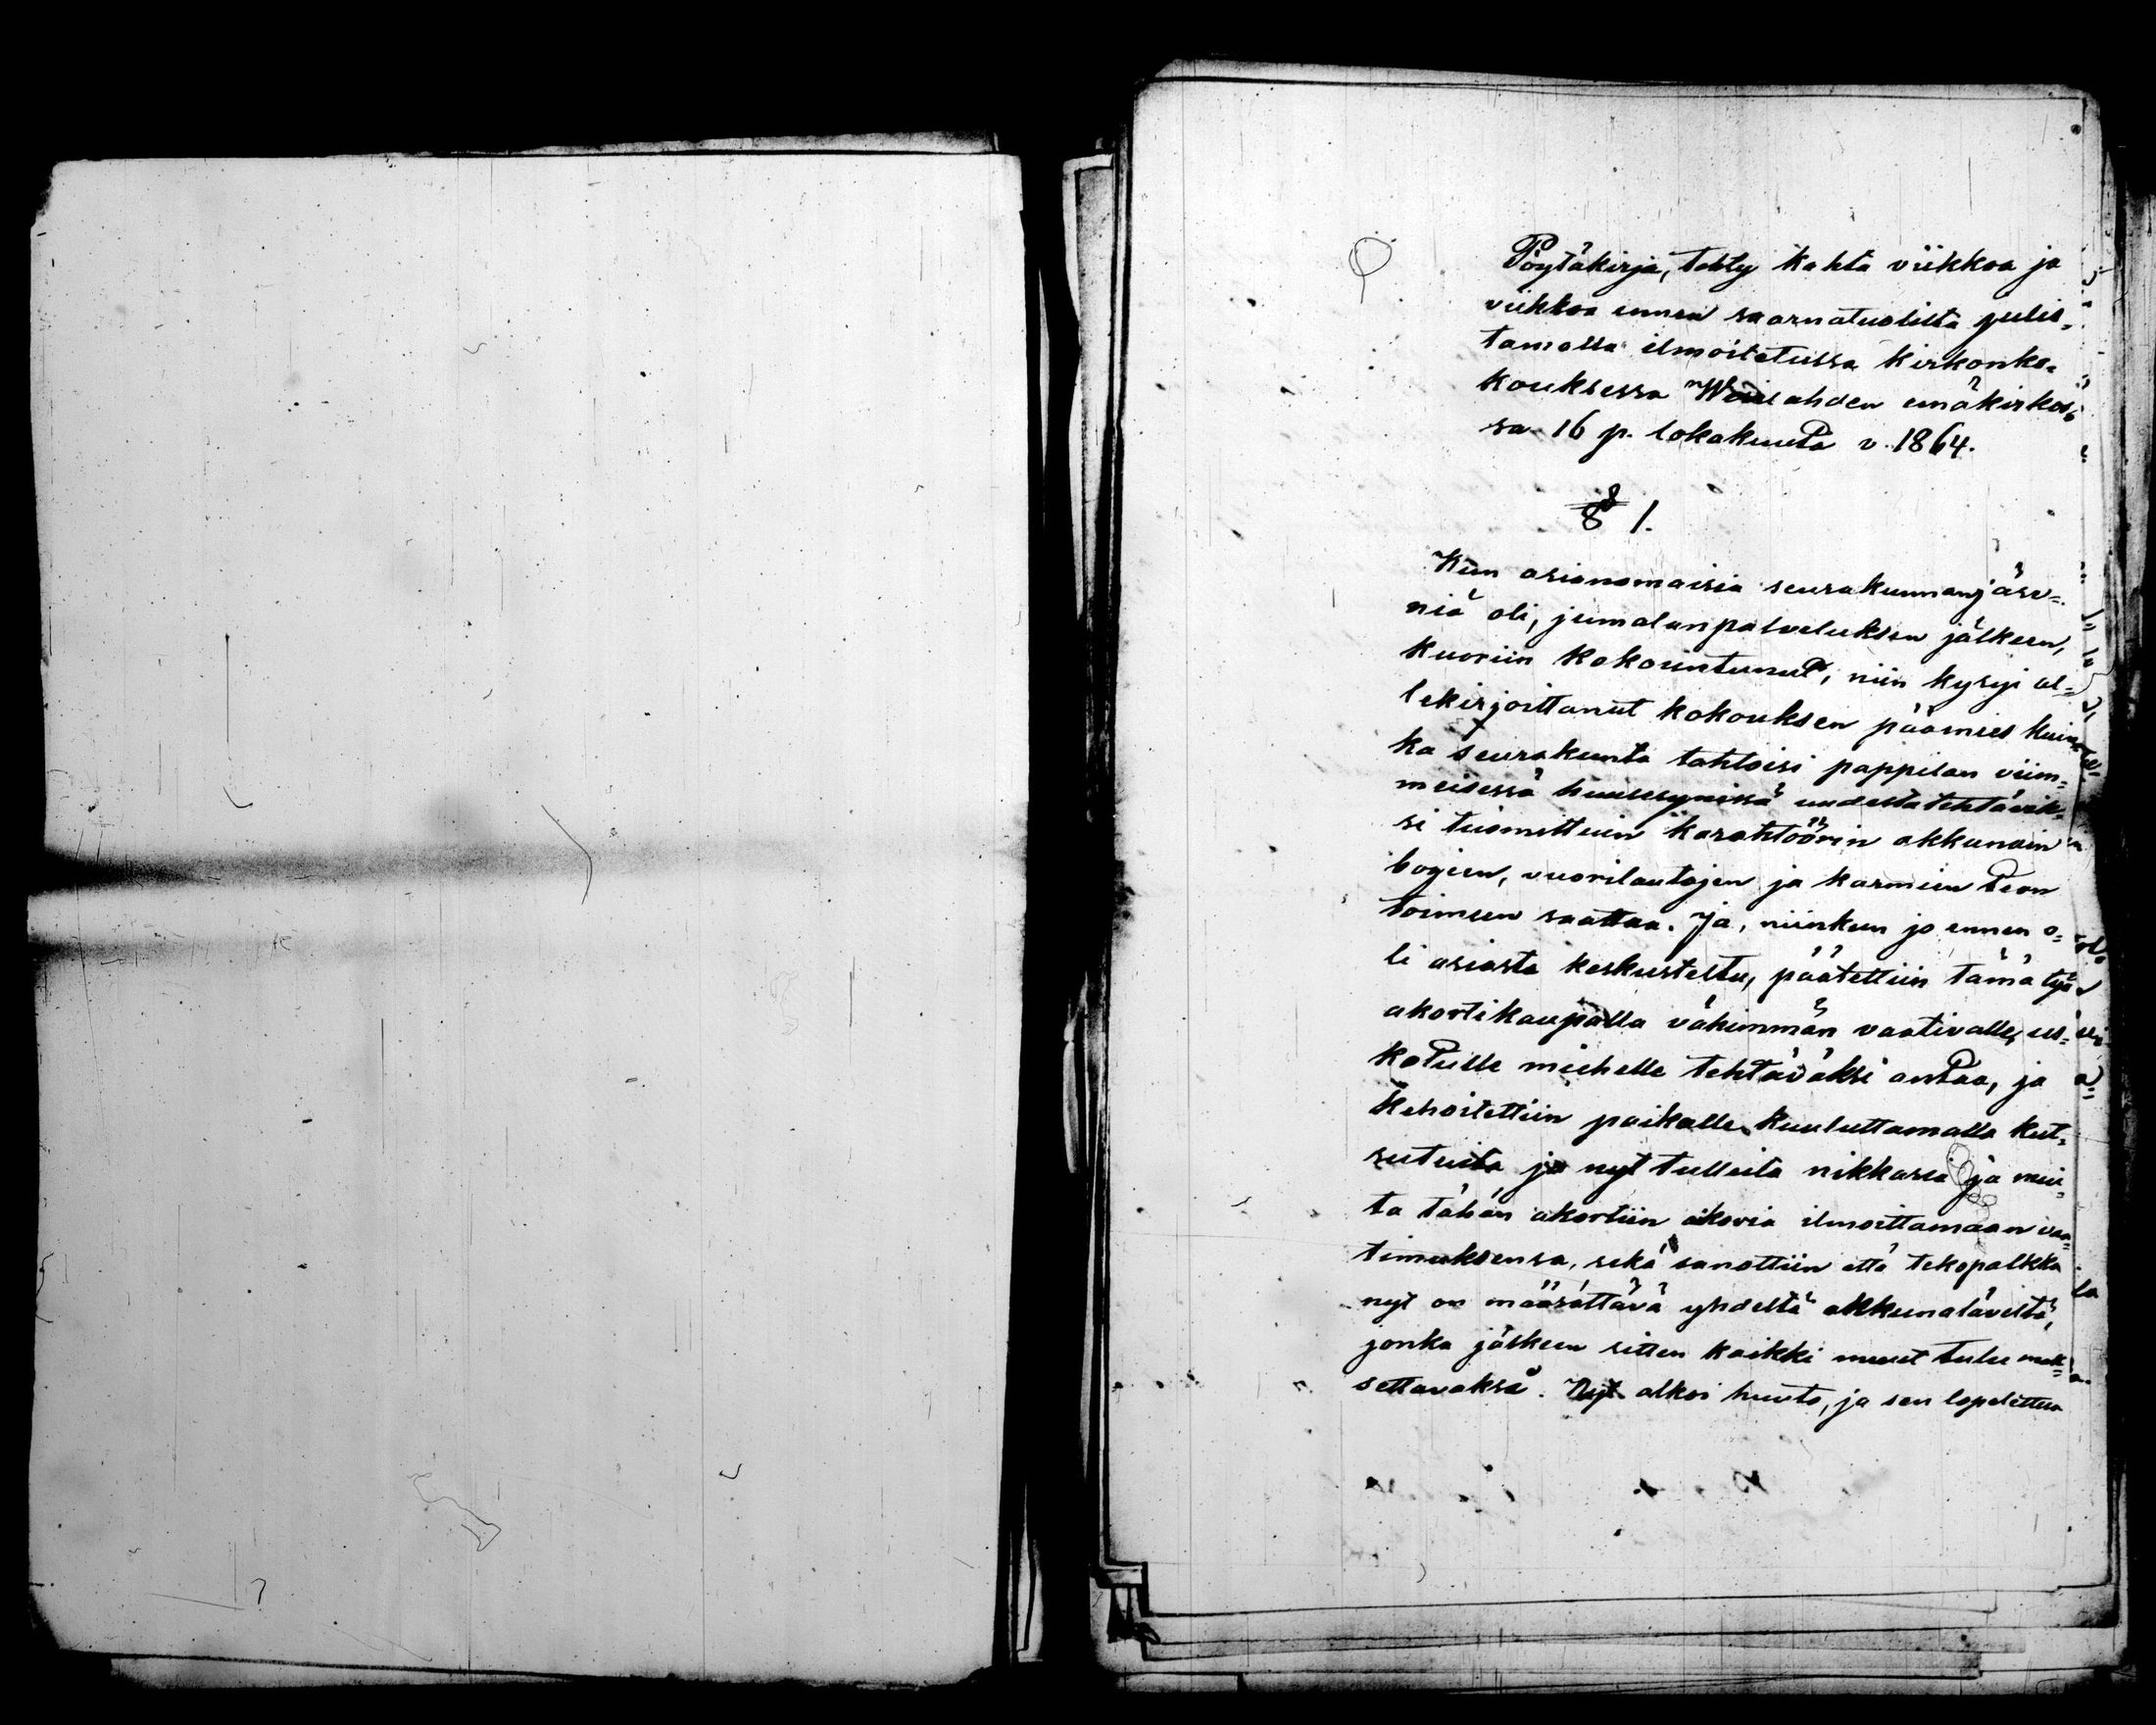 Pöytäkirja, tehty kahta viikkoa ja
viikkoa ennen saarnatuolista julis=
tamalla ilmoitetussa kirkonko=
kouksessa Wiilahden emäkirkos=
sa 16 p. lokakuuta v. 1864.
§ 1.
Kun asianomaisia seurakunnanjäse=
niä oli, jumalanpalveluksen jälkeen,
kuoriin kokountunut, niin kysyi al=
lekirjoittanut kokouksen päämies kuin=
ka seurakunta tahtoisi pappilan viim=
meisessä huusesynissä uudesta tehtävik=
si tuomittuin karahtöörin akkunain
bogien, vuorilautojen ja karmien teon
toimeen saattaa. Ja, niinkun jo ennen o=
li asiasta keskusteltu, päätettiin tämä työ
akortikaupalla vähimmän vaativalle, us=
kotulle miehelle tehtäväksi antaa, ja
kehoitettiin paikalle kuuluttamalla kut=
sutuita ja nyt tulleita nikkaria ja mui=
ta tähän akortiin aikovia ilmoittamaan vaa=
timuksensa, sekä sanottiin että tekopalkka
nyt on määrättävä yhdeltä akkunaläveltä,
jonka jälkeen sitten kaikki muut tulee mak=
settavaksi. Nyt alkoi huuto, ja sen lopetettua